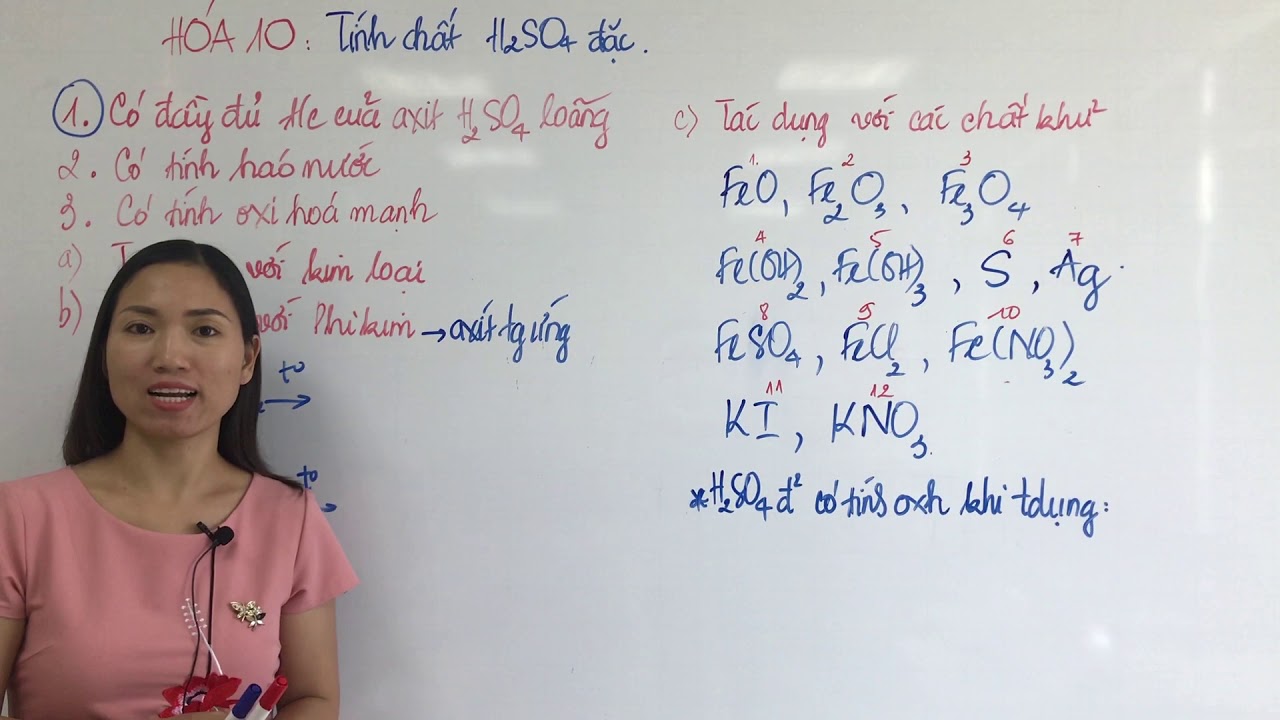 HÓA 10: Tính chất H₂SO₄ đặc.
1. Có đầy đủ tc của axit H₂SO₄ loãng
2. Có tính háo nước
3. Có tính oxi hoá mạnh
a) T với kim loại
b) với Phi kim → axit tg ứng
t° →
t° →
c) Tác dụng với các chất khử²
1. 2 3
FeO, Fe₂O₃, Fe₃O₄
4 5 6 7
Fe(OH)₂, Fe(OH)₃, S, Ag.
8 9 10
FeSO₄, FeCl₂, Fe(NO₃)₂
11 12
KI, KNO₃.
*H₂SO₄ đ² có tính oxh khi tdụng: